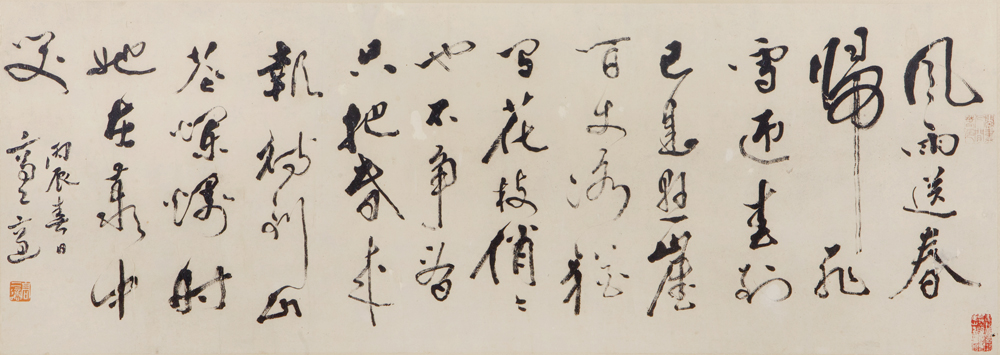 風雨送春
歸飛
雪迎春到
已是懸崖
百丈冰猶
有花枝俏〻
也不爭春
只把春來
報待到山
花爛熳時
她在叢中
笑
丙辰春日
高二適